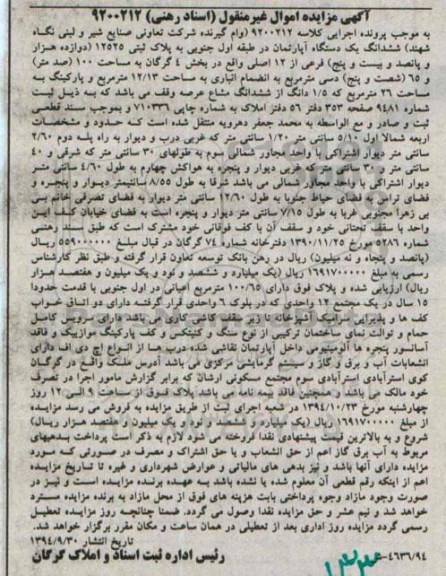 آگهی مزایده اموال غیرمنقول (اسناد رهنی) ۹۲۰۰۲۱۲
به موجب پرونده اجرایی کلاسه ۹۲۰۰۲۱۲ (وام گیرنده شرکت تعاونی صنایع شیر و لبنی نگاه
شهند) ششدانگ یک دستگاه آپارتمان در طبقه اول جنوبی به پلاک ثبتی ۱۲۵۲۵ (دوازده هزار
و پانصد و بیست و پنج) فرعی از ۱۲ اصلی واقع در بخش ۴ گرگان به مساحت ۱۰۰ (صد متر)
و ۶۵ (شصت و پنج) دسی مترمربع به انضمام انباری به مساحت ۱۲/۱۳ مترمربع و پارکینگ به
مساحت ۲۶ مترمربع که ۱/۵ دانگ از ششدانگ مشاع عرصه وقف می باشد که به ذیل ثبت
شماره ۹۴۸۱ صفحه ۳۵۳ دفتر ۵۶ دفتر املاک به شماره چاپی ۷۱۰۳۳۶ و بموجب سند قطعی
ثبت و صادر و مع الواسطه به محمد جعفر دهرویه منتقل شده است که حدود و مشخصات
اربعه شمالا اول ۵/۱۰ سانتی متر ۱/۲۰ سانتی متر که غربی درب و دیوار به راه پله دوم ۲/۶۰
سانتی متر دیوار اشتراکی با واحد مجاور شمالی سوم به طولهای ۳۰ سانتی متر که شرقی و ۴۰
سانتی متر و ۳۰ سانتی متر که غربی دیوار و پنجره به هواکش چهارم به طول ۴/۶۰ سانتی متر
دیوار اشتراکی با واحد مجاور شمالی می باشد شرقا به طول ۸/۵۵ سانتیمتر دیوار و پنجره و
فضای تراس به فضای حیاط جنوبا به طول ۱۲/۶۰ سانتی متر دیوار به فضای تصرفی خانم بی
بی زهرا مجنونی غربا به طول ۷/۱۵ سانتی متر دیوار و پنجره است به فضای خیابان کف این
واحد با سقف تحتانی خود و سقف آن با کف فوقانی خود مشترک است که طبق سند رهنی
شماره ۵۲۸۶ مورخ ۱۳۹۰/۱۱/۲۵ دفترخانه شماره ۷۴ گرگان در قبال مبلغ ۵۵۹۰۰۰۰۰۰ ریال
(پانصد و پنجاه و نه میلیون) ریال در رهن بانک توسعه تعاون قرار گرفته و طبق نظر کارشناس
رسمی به مبلغ ۱۶۹۱۷۰۰۰۰۰ ریال (یک میلیارد و ششصد و نود و یک میلیون و هفتصد هزار
ریال) ارزیابی شده و پلاک فوق دارای ۱۰۰/۶۵ مترمربع اعیانی در اول جنوبی با قدمت حدودا
۱۵ سال در یک مجتمع ۱۲ واحدی که در بلوک ۶ واحدی قرار گرفته دارای دو اتاق خواب
کف ها و پذیرایی سرامیک آشپزخانه تا زیر سقف کاشی کاری می باشد دارای سرویس کامل
حمام و توالت نمای ساختمان ترکیبی از نوع سنگ و کنیتکس و کف پارکینگ موزاییک و فاقد
آسانسور پنجره ها آلومینیومی داخل آپارتمان نقاشی شده درب ها از انواع اچ دی اف دارای
انشعابات آب و برق و گاز و سیستم گرمایشی مرکزی می باشد آدرس ملک واقع در گرگان
کوی استرآبادی استرآبادی سوم مجتمع مسکونی ارشان که برابر گزارش مامور اجرا در تصرف
خود مالک می باشد و همچنین فاقد بیمه نامه می باشد پلاک فوق از ساعت ۹ الی ۱۲ روز
چهارشنبه مورخ ۱۳۹۴/۱۰/۲۳ در شعبه اجرای ثبت از طریق مزایده به فروش می رسد مزایده
از مبلغ ۱۶۹۱۷۰۰۰۰۰ ریال (یک میلیارد و ششصد و نود و یک میلیون و هفتصد هزار ریال)
شروع و به بالاترین قیمت پیشنهادی نقدا فروخته می شود لازم به ذکر است پرداخت بدهیهای
مربوط به آب برق گاز اعم از حق انشعاب و یا حق اشتراک و مصرف در صورتی که مورد
مزایده دارای آنها باشد و نیز بدهی های مالیاتی و عوارض شهرداری و غیره تا تاریخ مزایده
اعم از اینکه رقم قطعی آن معلوم شده یا نشده باشد به عهده برنده مزایده است و نیز در
صورت وجود مازاد وجوه پرداختی بابت هزینه های فوق از محل مازاد به برنده مزایده مسترد
خواهد شد و نیم عشر و حق مزایده نقدا وصول می گردد. ضمنا چنانچه روز مزایده تعطیل
رسمی گردد مزایده روز اداری بعد از تعطیلی در همان ساعت و مکان مقرر برگزار خواهد شد.
تاریخ انتشار ۱۳۹۴/۹/۳۰
رئیس اداره ثبت اسناد و املاک گرگان
۴۶۳۶/۹۴